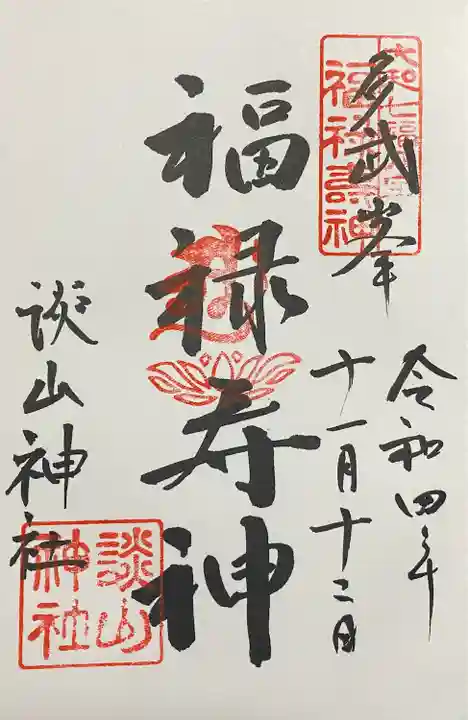 多武峯
令和四年
十一月十二日
福禄寿神
談山神社
福禄寿神
談山
神社